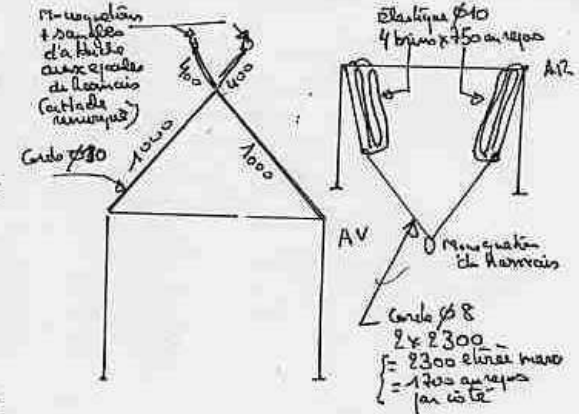 Mousquetons
+ sangles
d'attache
aux epaules
du harnais
(attache
remorque)
400
400
Corde Ø10
1000
1000
AV
élastique Ø10
4 brins x 750 au repos
AR
Mousqueton
du harnais
Corde Ø8
2 x 2300
= 2300 étirée
= 1700 au repos
par côté